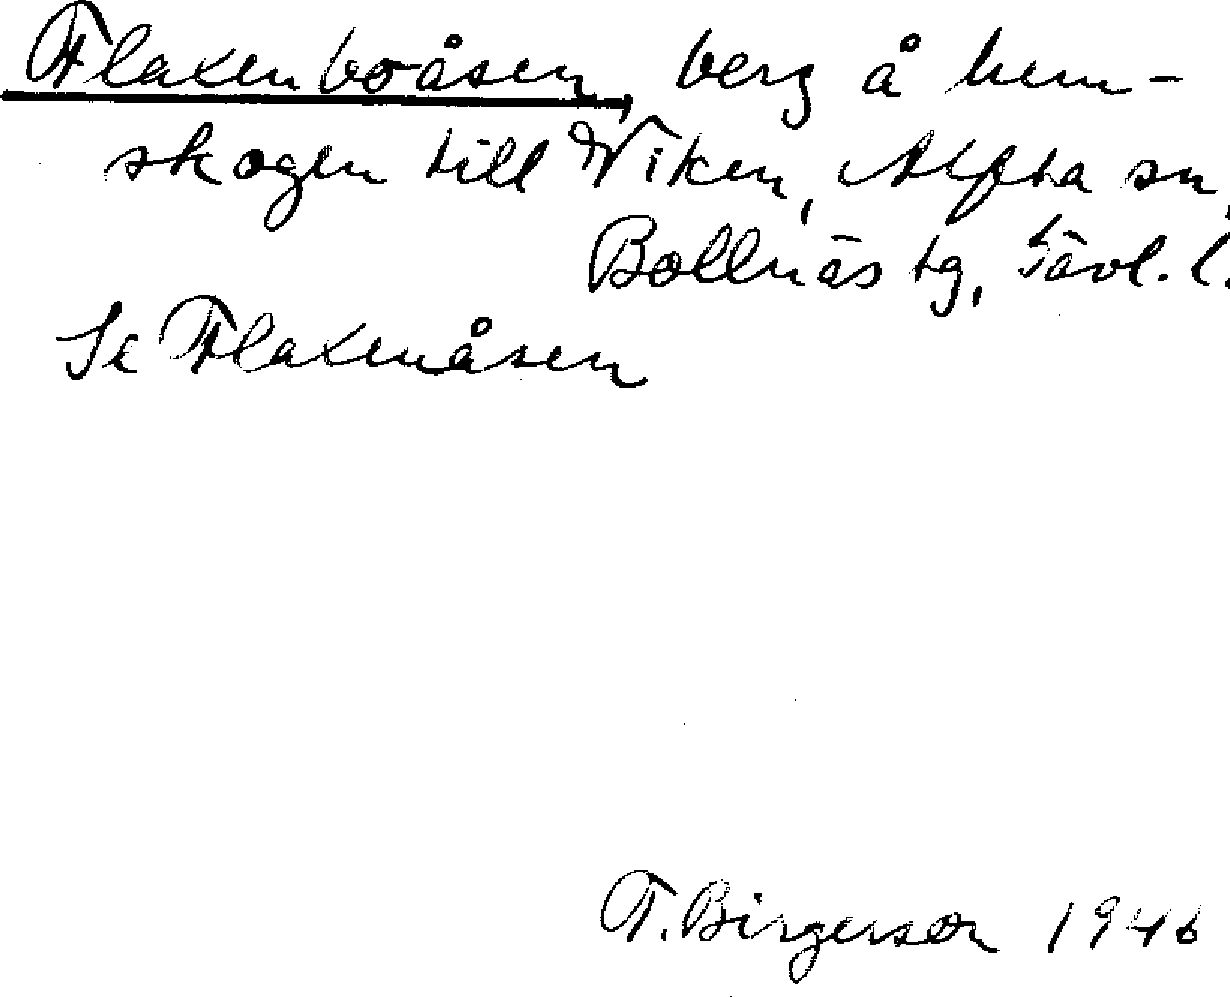 Flaxenboåsen, berg å hem-
skogen till Viken, Alfta sn,
Bollnäs tg, Gävl. l.
Se Flaxenåsen
T. Birgerson 1946